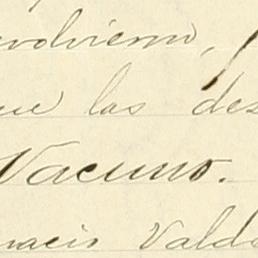 volviera,
que las des
Vacuno.
nacio Valde